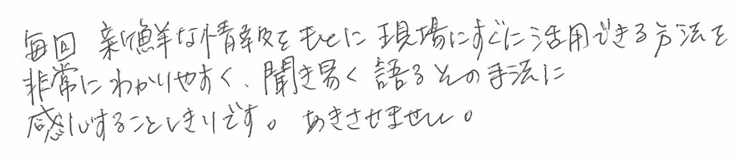 毎回 新鮮な情報をもとに 現場にすぐに活用できる方法を
非常にわかりやすく、聞き易く 語るその手法に
感心することしきりです。あきさせません。